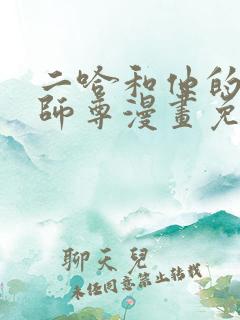 二哈和他的
師尊漫畫免
聊天兒
未经同意禁止转载